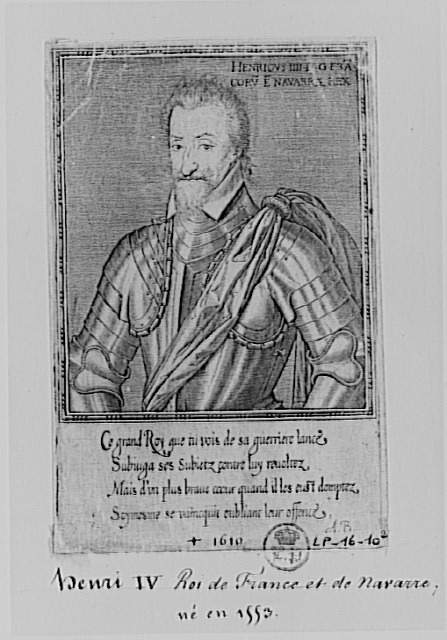 HENRICVS IIII G FRA
CORV̄ E NAVARRÆ REX
Ce grand Roy que tu vois de sa guerriere lance
Subiuga ses Subietz contre luy reuoltez,
Mais d'vn plus braue cœur quand il les eust domptez,
Soymesme se vainquit oubliant leur offence,
+ 1610
A. B.
LP-16-10²
Henri IV Roi de France et de Navarre;
né en 1553.